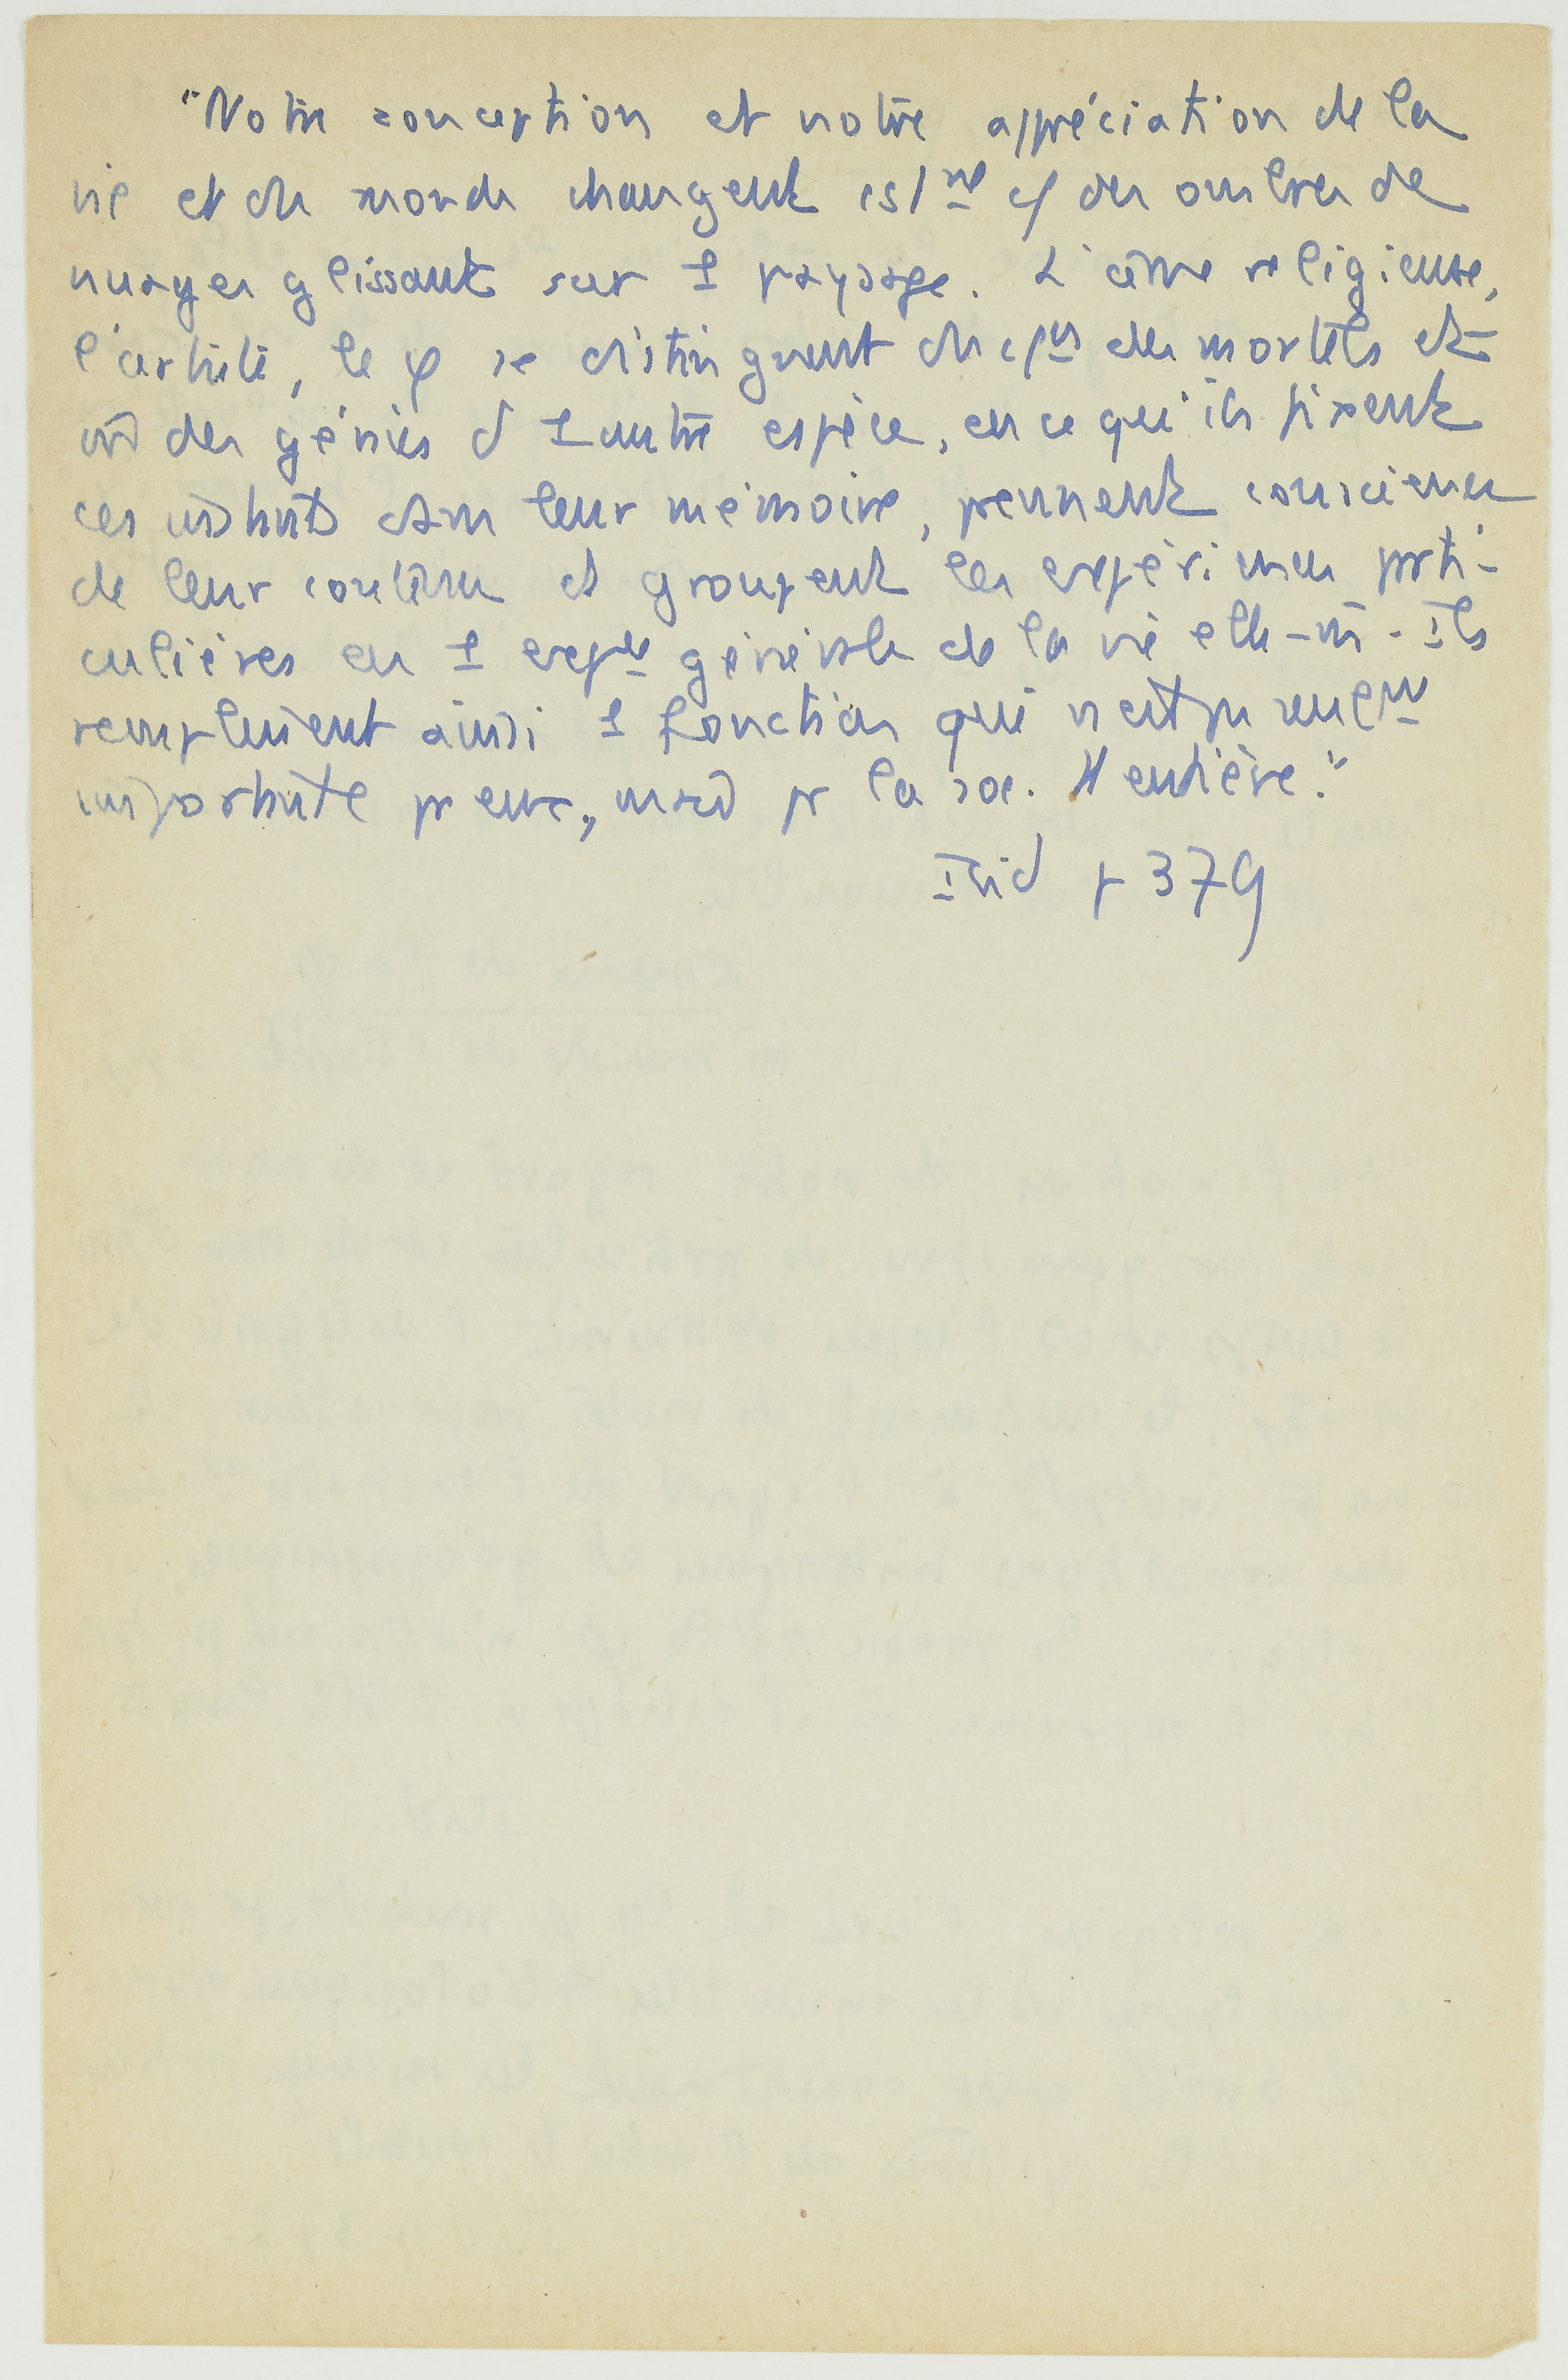 "Notre conception et notre appréciation de la
vie et du monde changent cs/ᵐᵉⁿᵗ c/ des ombres de
nuages glissant sur 1 paysage. L'âme religieuse,
l'artiste, le φ se distinguent du c/ᵘⁿ des mortels et
des génies d 1 autre espèce, en ce qu'ils fixent
ces instants dans leur mémoire, prennent conscience
de leur contenu et groupent les expériences prti-
culières en 1 expᶜᵉ générale de la vie elle-m̄. Ils
remplissent ainsi 1 fonction qui n'est pas seulᵗ
importante pr eux, mais pr la soc. H entière."
Ibid p 379